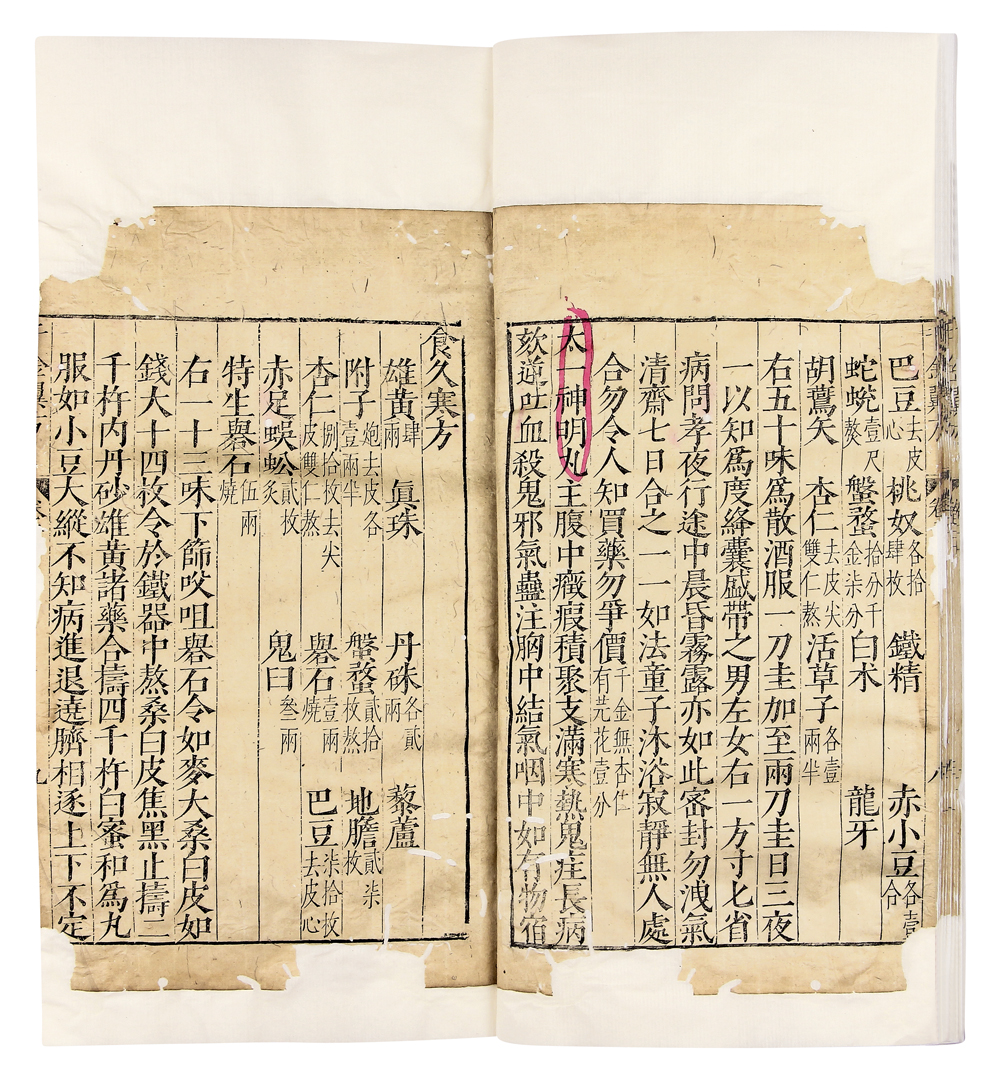 巴豆去皮心 桃奴各拾肆枚 鐵精 赤小豆各壹合
蛇蛻壹尺熬 盤蝥拾分千金柒分 白术 龍牙
胡鷰矢 杏仁去皮尖雙仁熬 活草子各壹兩半
右五十味為散酒服一刀圭加至兩刀圭日三夜
一以知為度絳囊盛帶之男左女右一方寸匕省
病問孝夜行途中晨昏霧露亦如此密封勿洩氣
清齋七日合之一一如法童子沐浴寂靜無人處
合勿令人知買藥勿爭價千金無杏仁有芫花壹分
太一神明丸主腹中癥瘕積聚支滿寒熱鬼疰長病
欬逆吐血殺鬼邪氣蠱注胸中結氣咽中如有物宿
食久寒方
雄黃肆兩 真珠 丹硃各貳兩 藜蘆
附子炮去皮各壹兩半 盤蝥貳拾枚熬 地膽貳柒枚
杏仁捌拾枚去尖皮雙仁熬 礜石壹兩燒 巴豆柒拾枚去皮心
赤足蜈蚣貳枚炙 鬼臼叁兩
特生礜石伍兩燒
右一十三味下篩㕮咀礜石令如麥大桑白皮如
錢大十四枚令於鐵器中熬桑白皮焦黑止擣二
千杵內丹砂雄黃諸藥合擣四千杵白蜜和為丸
服如小豆大縱不知病進退遶臍相逐上下不定